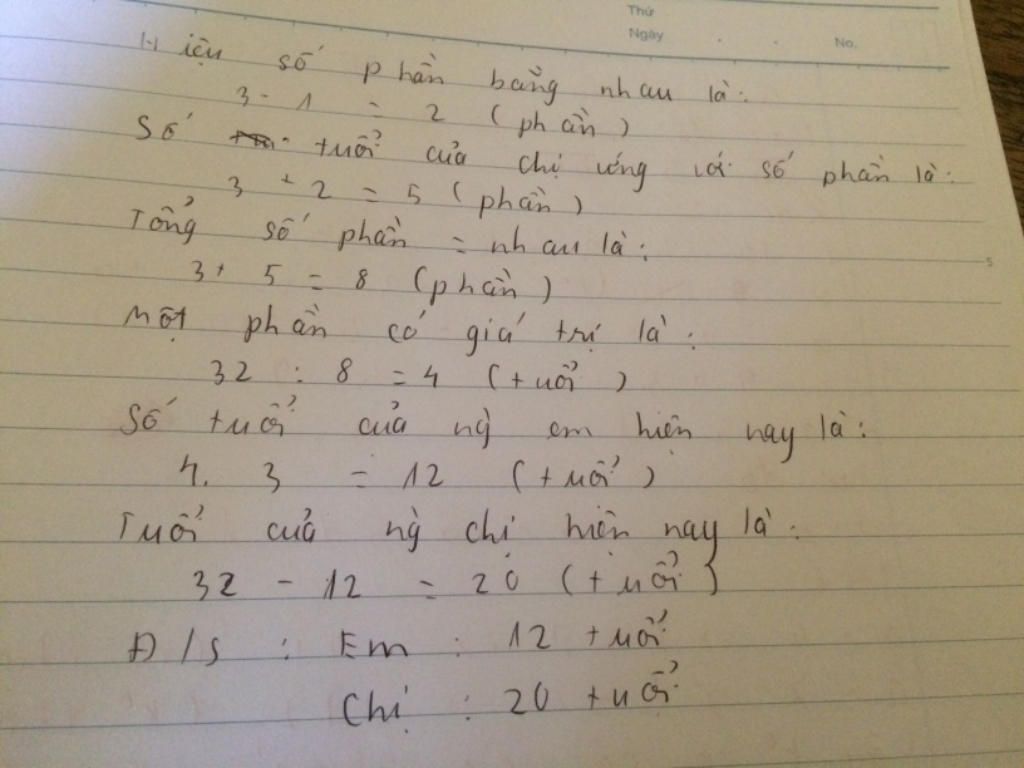 Thứ
Ngày . . No.
Hiệu số phần bằng nhau là:
3 - 1 = 2 (phần)
Số tuổi của chị ứng với số phần là:
3 + 2 = 5 (phần)
Tổng số phần = nhau là:
3 + 5 = 8 (phần)
Một phần có giá trị là:
32 : 8 = 4 (tuổi)
Số tuổi của ng` em hiện nay là:
4. 3 = 12 (tuổi)
Tuổi của ng` chị hiện nay là:
32 - 12 = 20 (tuổi}
Đ/S : Em : 12 tuổi
Chị : 20 tuổi